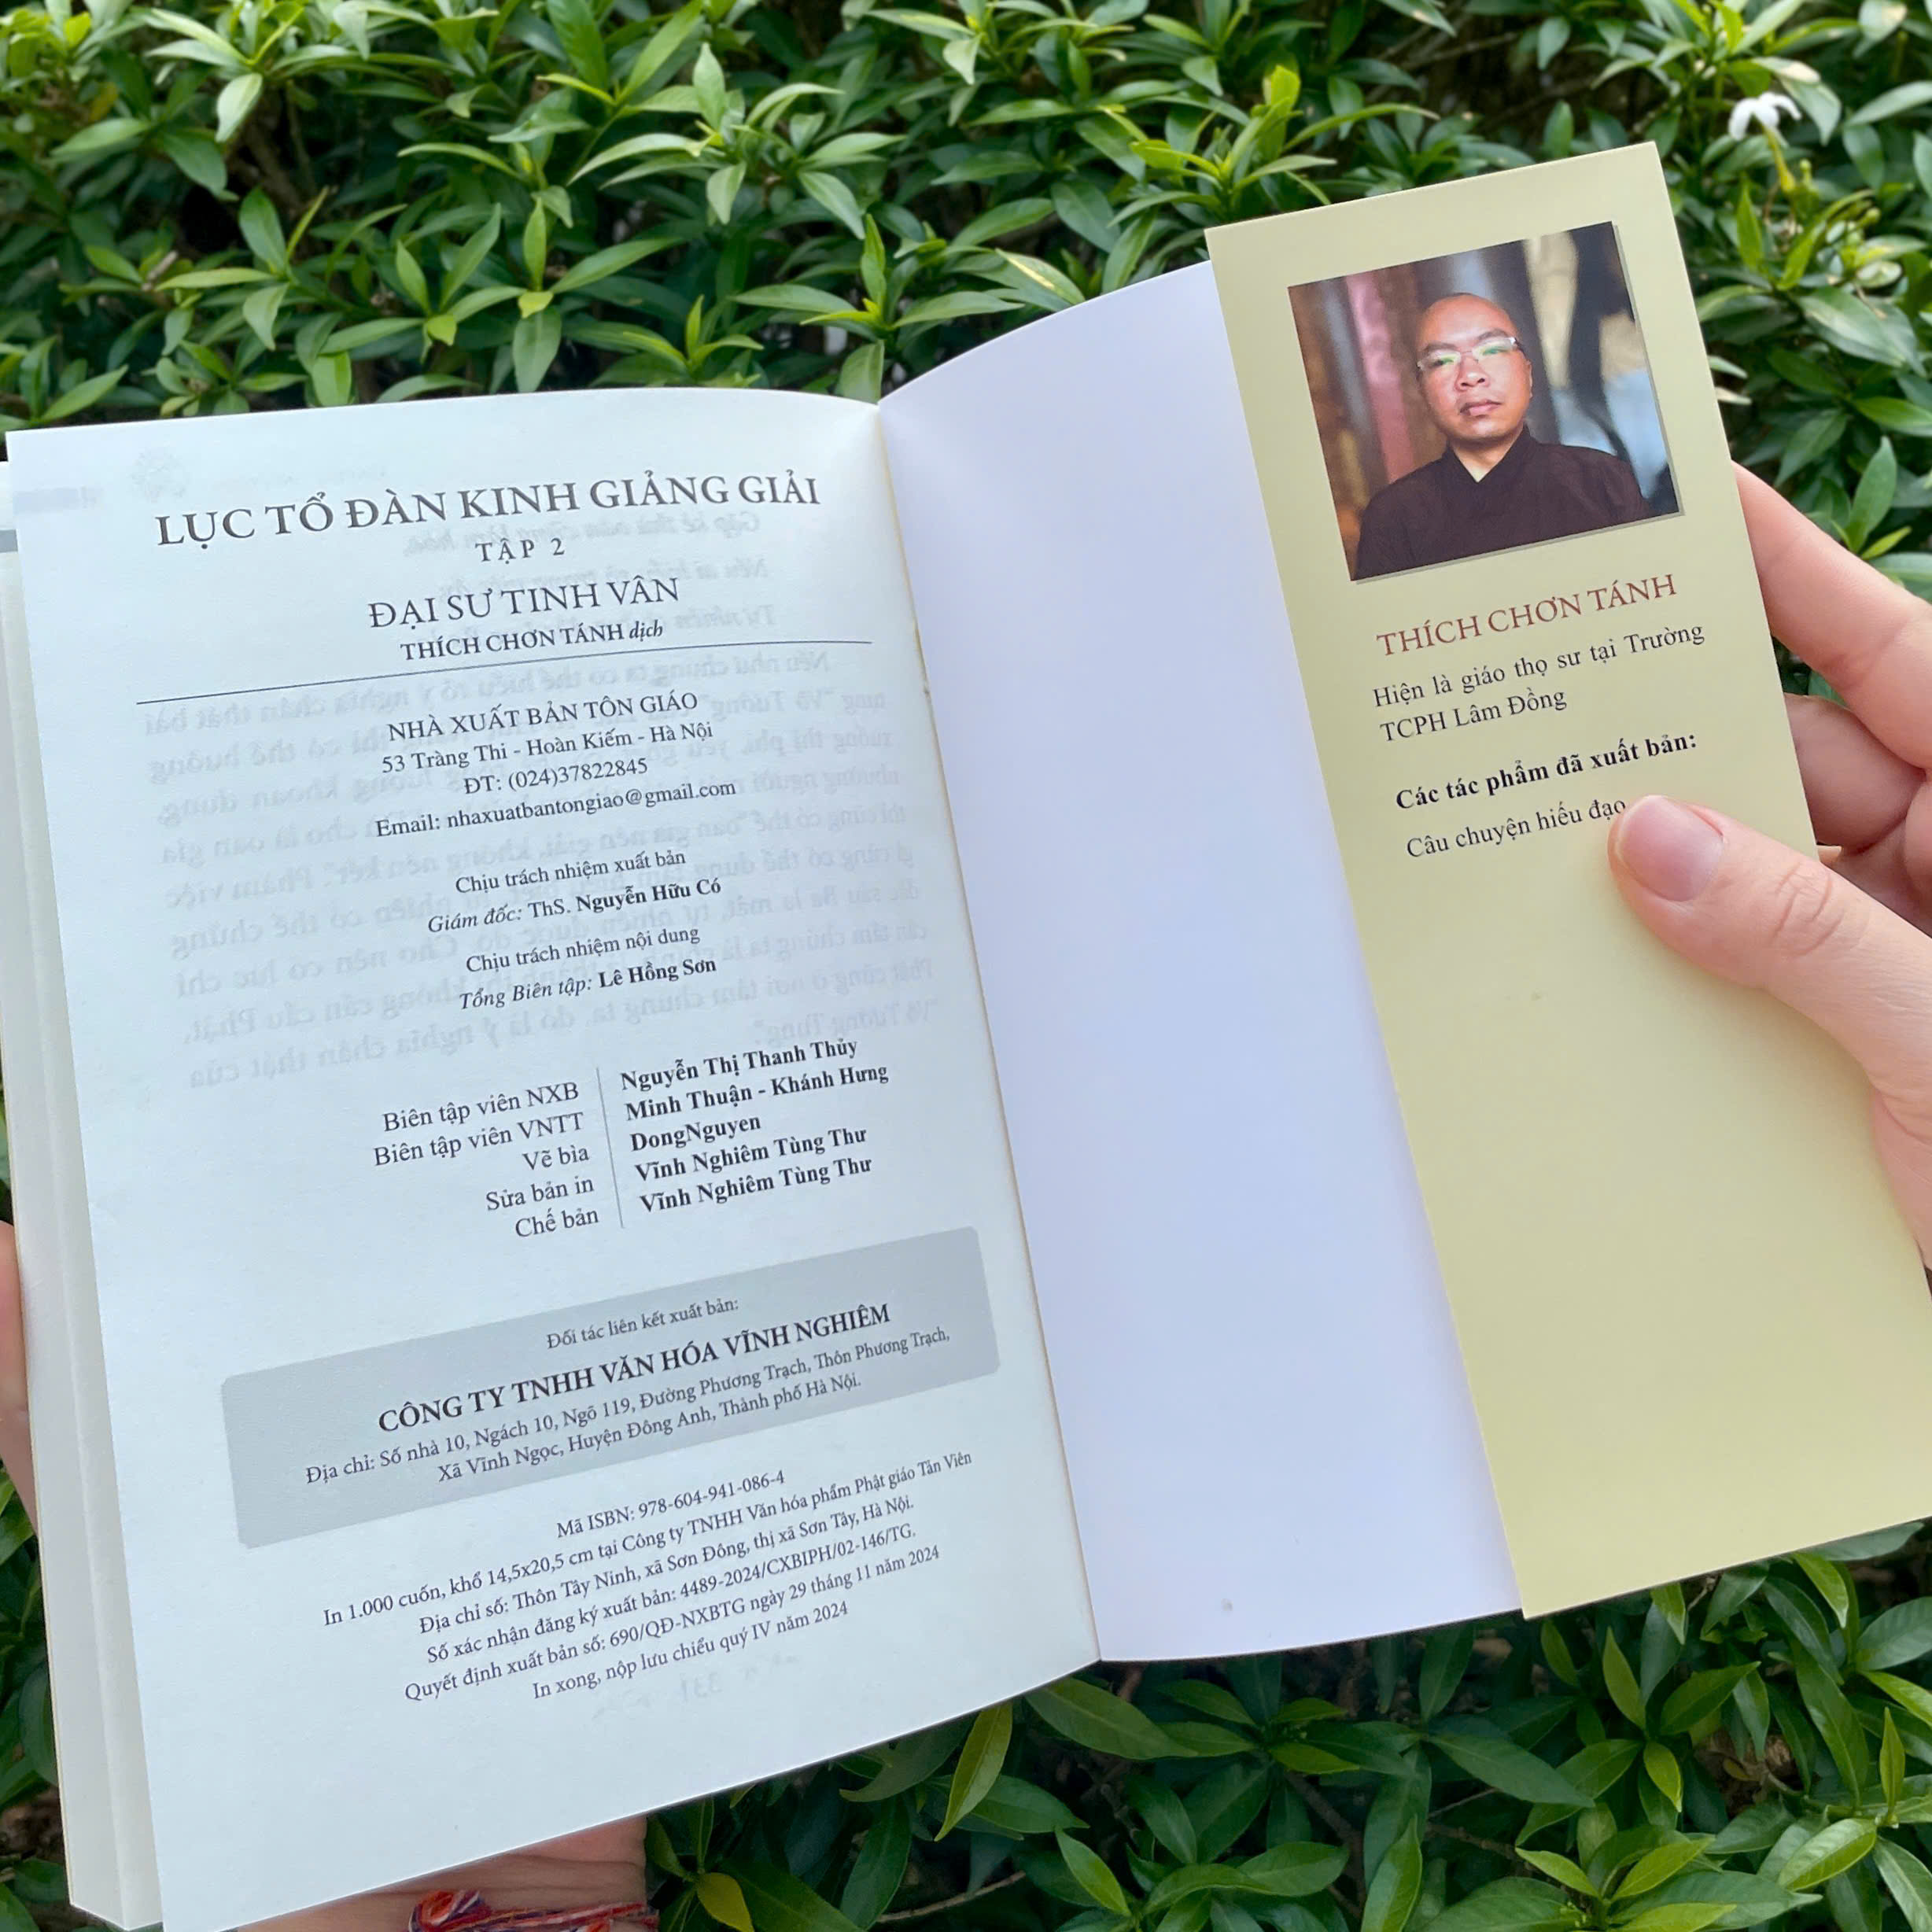 LỤC TỔ ĐÀN KINH GIẢNG GIẢI
TẬP 2
ĐẠI SƯ TINH VÂN
THÍCH CHƠN TÁNH dịch
NHÀ XUẤT BẢN TÔN GIÁO
53 Tràng Thi - Hoàn Kiếm - Hà Nội
ĐT: (024)37822845
Email: nhaxuatbantongiao@gmail.com
Chịu trách nhiệm xuất bản
Giám đốc: ThS. Nguyễn Hữu Có
Chịu trách nhiệm nội dung
Tổng Biên tập: Lê Hồng Sơn
Biên tập viên NXB Nguyễn Thị Thanh Thủy
Biên tập viên VNTT Minh Thuận - Khánh Hưng
Vẽ bìa DongNguyen
Sửa bản in Vĩnh Nghiêm Tùng Thư
Chế bản Vĩnh Nghiêm Tùng Thư
Đối tác liên kết xuất bản:
CÔNG TY TNHH VĂN HÓA VĨNH NGHIÊM
Địa chỉ: Số nhà 10, Ngách 10, Ngõ 119, Đường Phương Trạch, Thôn Phương Trạch,
Xã Vĩnh Ngọc, Huyện Đông Anh, Thành phố Hà Nội.
Mã ISBN: 978-604-941-086-4
In 1.000 cuốn, khổ 14,5x20,5 cm tại Công ty TNHH Văn hóa phẩm Phật giáo Tản Viên
Địa chỉ số: Thôn Tây Ninh, xã Sơn Đông, thị xã Sơn Tây, Hà Nội.
Số xác nhận đăng ký xuất bản: 4489-2024/CXBIPH/02-146/TG.
Quyết định xuất bản số: 690/QĐ-NXBTG ngày 29 tháng 11 năm 2024
In xong, nộp lưu chiểu quý IV năm 2024
THÍCH CHƠN TÁNH
Hiện là giáo thọ sư tại Trường
TCPH Lâm Đồng
Các tác phẩm đã xuất bản:
Câu chuyện hiếu đạo